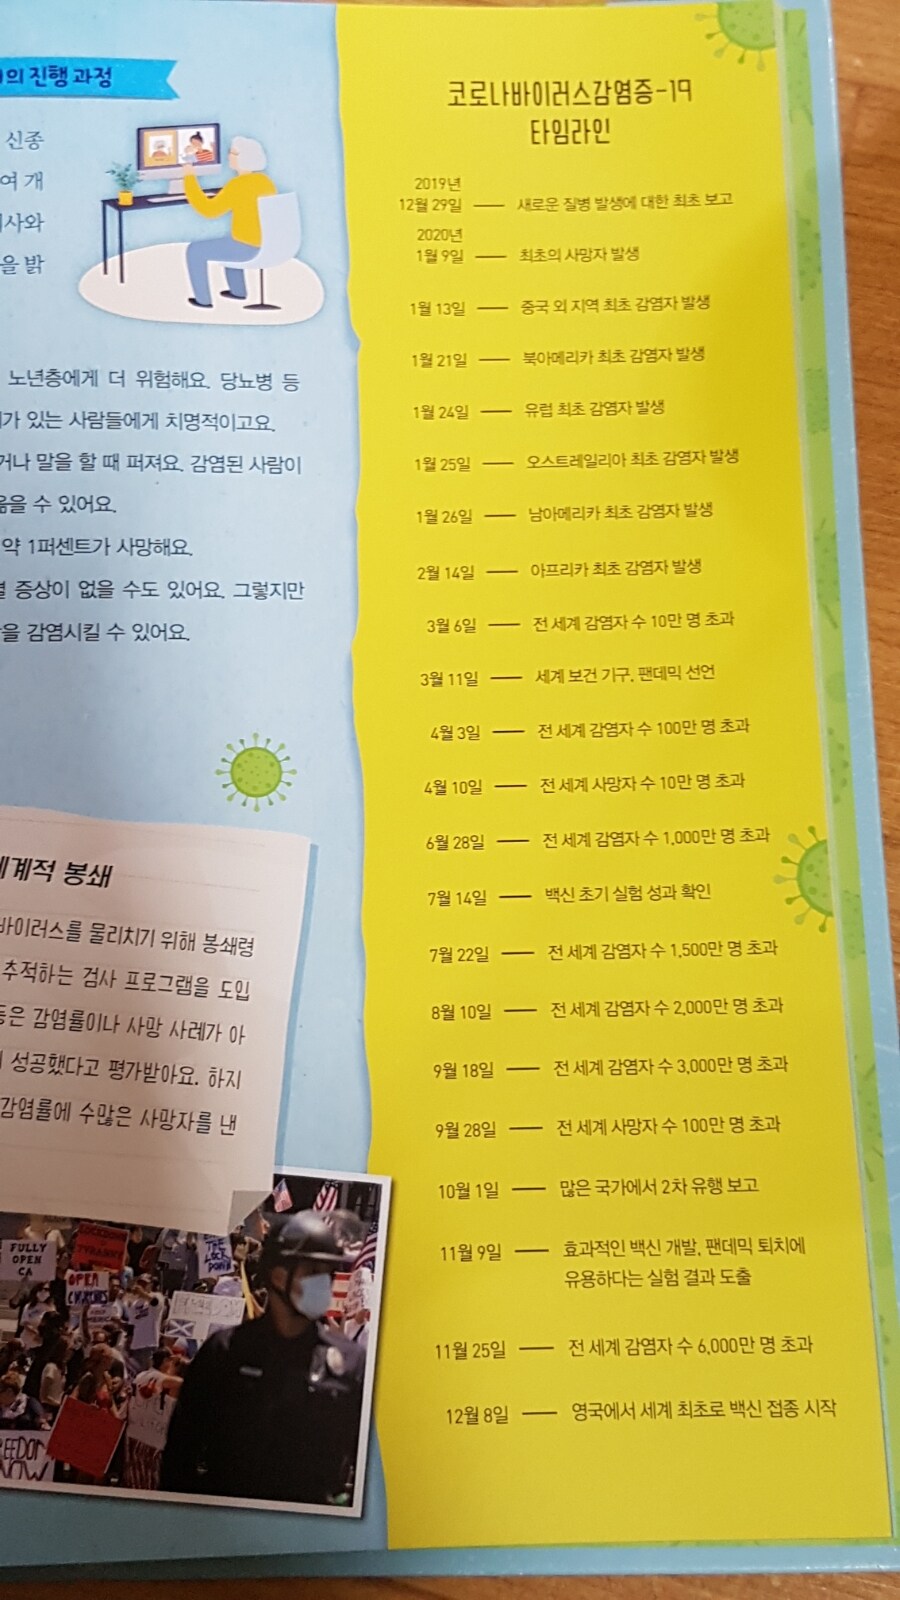 의 진행 과정
신종
여 개
사와
을 밝
노년층에게 더 위험해요. 당뇨병 등
가 있는 사람들에게 치명적이고요.
거나 말을 할 때 퍼져요. 감염된 사람이
옮을 수 있어요.
약 1퍼센트가 사망해요.
증상이 없을 수도 있어요. 그렇지만
을 감염시킬 수 있어요.
세계적 봉쇄
바이러스를 물리치기 위해 봉쇄령
추적하는 검사 프로그램을 도입
등은 감염률이나 사망 사례가 아
성공했다고 평가받아요. 하지
감염률에 수많은 사망자를 낸
FULLY
OPEN
CA
LOCKDOWN
TYRANNY
OPEN
CHURCHES
THE
LOCK
DOWN
FREEDOM
NOW
코로나바이러스감염증-19
타임라인
2019년
12월 29일 — 새로운 질병 발생에 대한 최초 보고
2020년
1월 9일 — 최초의 사망자 발생
1월 13일 — 중국 외 지역 최초 감염자 발생
1월 21일 — 북아메리카 최초 감염자 발생
1월 24일 — 유럽 최초 감염자 발생
1월 25일 — 오스트레일리아 최초 감염자 발생
1월 26일 — 남아메리카 최초 감염자 발생
2월 14일 — 아프리카 최초 감염자 발생
3월 6일 — 전 세계 감염자 수 10만 명 초과
3월 11일 — 세계 보건 기구, 팬데믹 선언
4월 3일 — 전 세계 감염자 수 100만 명 초과
4월 10일 — 전 세계 사망자 수 10만 명 초과
6월 28일 — 전 세계 감염자 수 1,000만 명 초과
7월 14일 — 백신 초기 실험 성과 확인
7월 22일 — 전 세계 감염자 수 1,500만 명 초과
8월 10일 — 전 세계 감염자 수 2,000만 명 초과
9월 18일 — 전 세계 감염자 수 3,000만 명 초과
9월 28일 — 전 세계 사망자 수 100만 명 초과
10월 1일 — 많은 국가에서 2차 유행 보고
11월 9일 — 효과적인 백신 개발, 팬데믹 퇴치에
유용하다는 실험 결과 도출
11월 25일 — 전 세계 감염자 수 6,000만 명 초과
12월 8일 — 영국에서 세계 최초로 백신 접종 시작